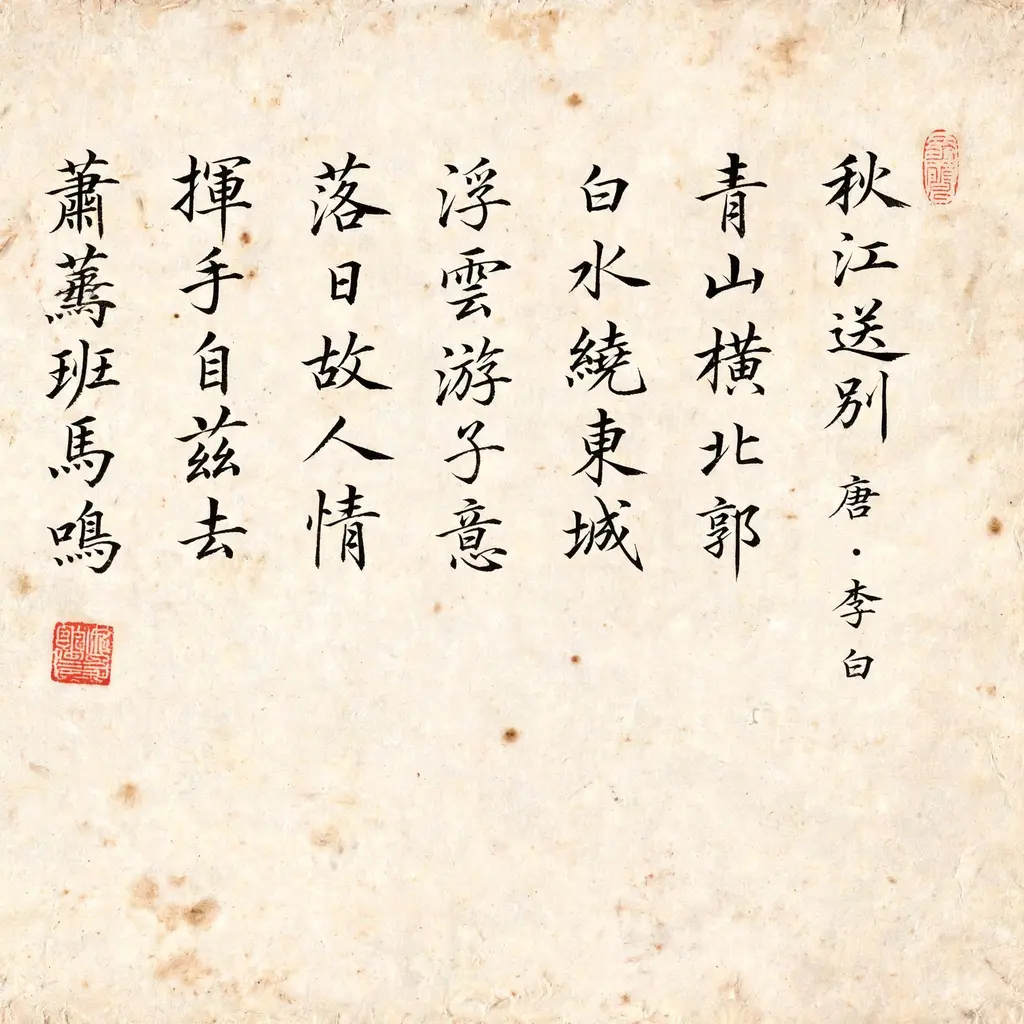 秋江送別 唐·李白
青山橫北郭
白水繞東城
浮雲游子意
落日故人情
揮手自茲去
蕭班馬鳴